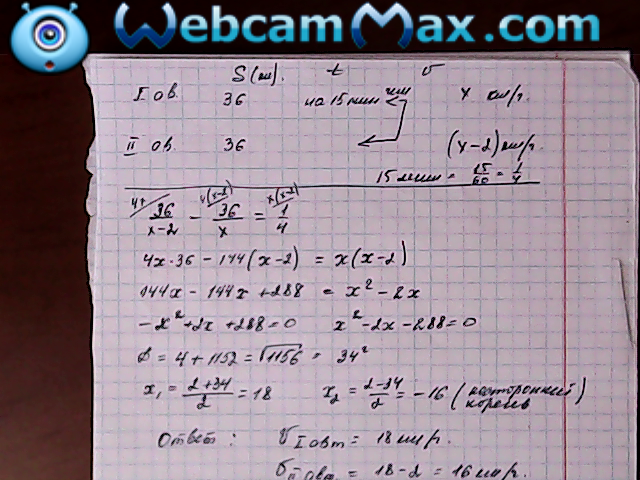 WebcamMax.com
S(км). t v
I ов. 36 на 15 мин < чем x км/ч.
II ов. 36 (x-2) км/ч.
15 мин = 15/60 = 1/4
4x 4(x-2) x(x-2)
36/(x-2) - 36/x = 1/4
4x·36 - 144(x-2) = x(x-2)
144x - 144x + 288 = x² - 2x
-x² + 2x + 288 = 0 x² - 2x - 288 = 0
D = 4 + 1152 = √1156 = 34²
x₁ = (2+34)/2 = 18 x₂ = (2-34)/2 = -16 (посторонний
корень)
Ответ: v I авт = 18 км/ч.
v II авт. = 18-2 = 16 км/ч.